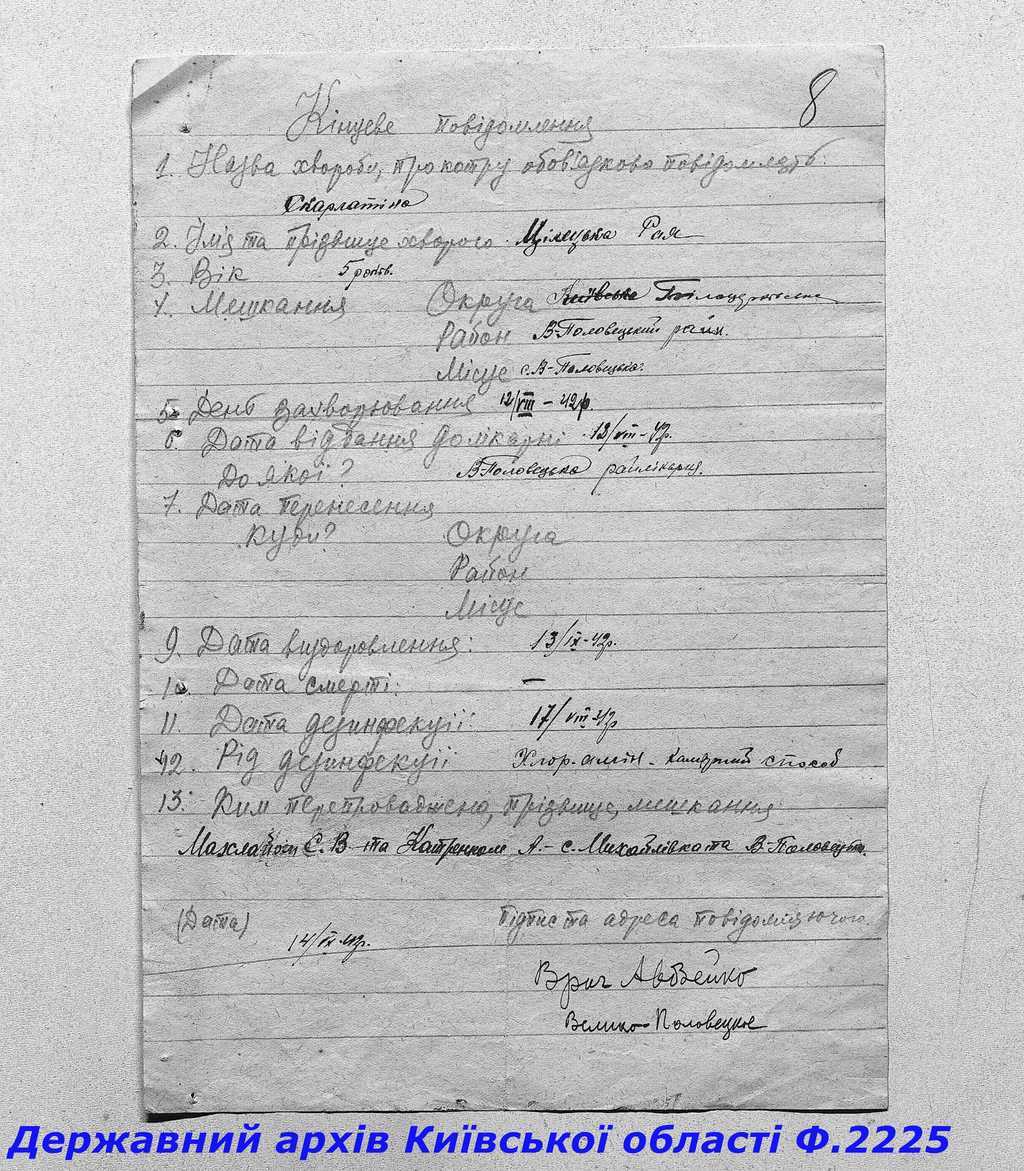 8
Кінцеве повідомлення
1. Назва хвороби, про котру обов'язково повідомлять:
Скарлатіна
2. Ім'я та прізвище хворого. Цілецька Рая
3. Вік 5 років.
4. Мешкання Округа Київська
Район В-Половецький район.
Місце с. В-Половецьке.
5. День захворювання 12/VIII – 42р.
6. Дата віддання до лікарні 12/VIII – 42р.
До якої? В Половецька райлікарня.
7. Дата перенесення
Куди? Округа
Район
Місце
9. Дата виздоровлення: 13/IX-42р.
10. Дата смерті: –
11. Дата дезинфекції: 17/VIII-42р
12. Рід дезинфекції Хлор-амін - камерний способ
13. Ким перепроваджена, прізвище, мешкання
С. В та Катренком А. – с. Михайлівка та В-Половецьке.
(Дата) Підпис та адреса повідомляючого.
14/IX 42р.
Врач Авдзейко
Велико-Половецкое
Державний архів Київської області Ф.2225